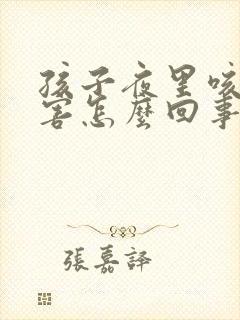 孩子夜里咳
害怎麼回事
張嘉譯